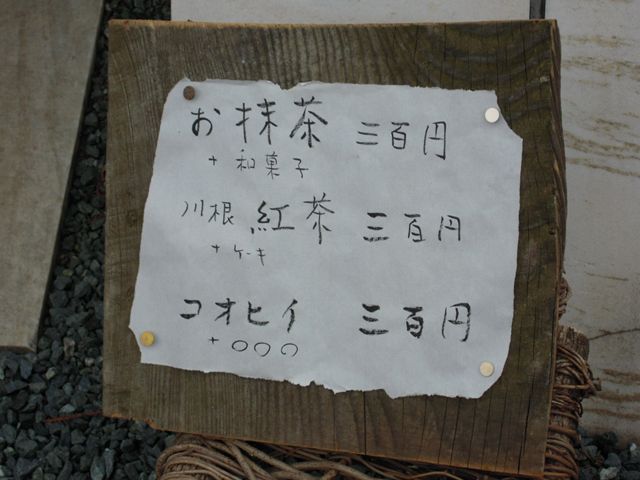 お抹茶 三百円
+ 和菓子
川根 紅茶 三百円
+ ケーキ
コオヒイ 三百円
+ ○○○